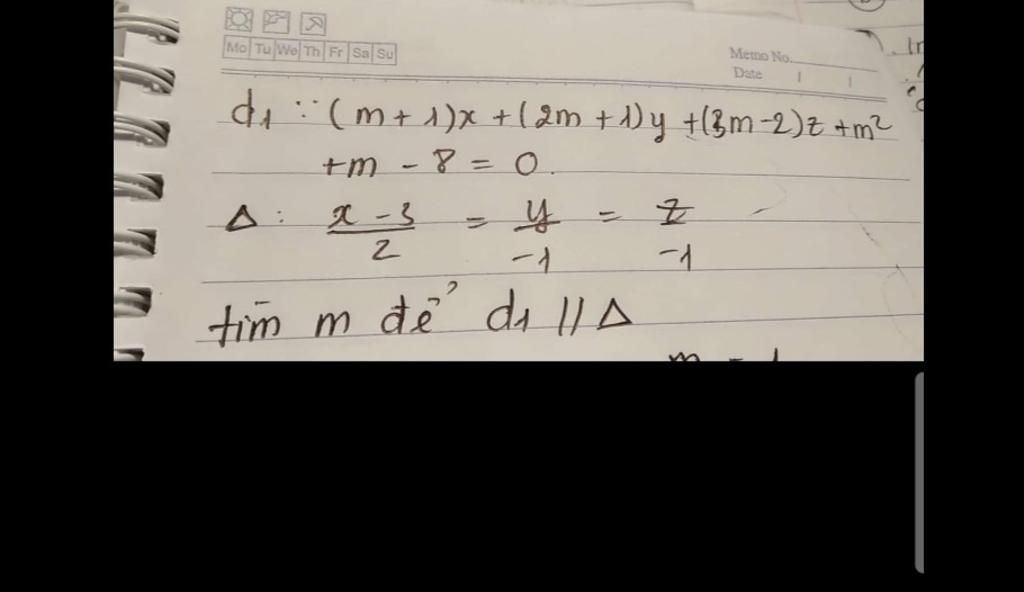 Mo Tu We Th Fr Sa Su
Memo No.
Date
d1 : (m+1)x + (2m+1)y + (3m-2)z + m²
+m - 8 = 0.
Δ : (x-3)/2 = y/-1 = z/-1
tìm m để d1 // Δ